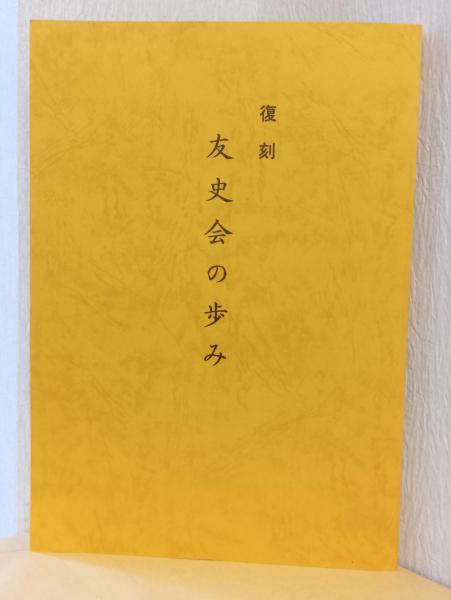 復刻
友史会の歩み